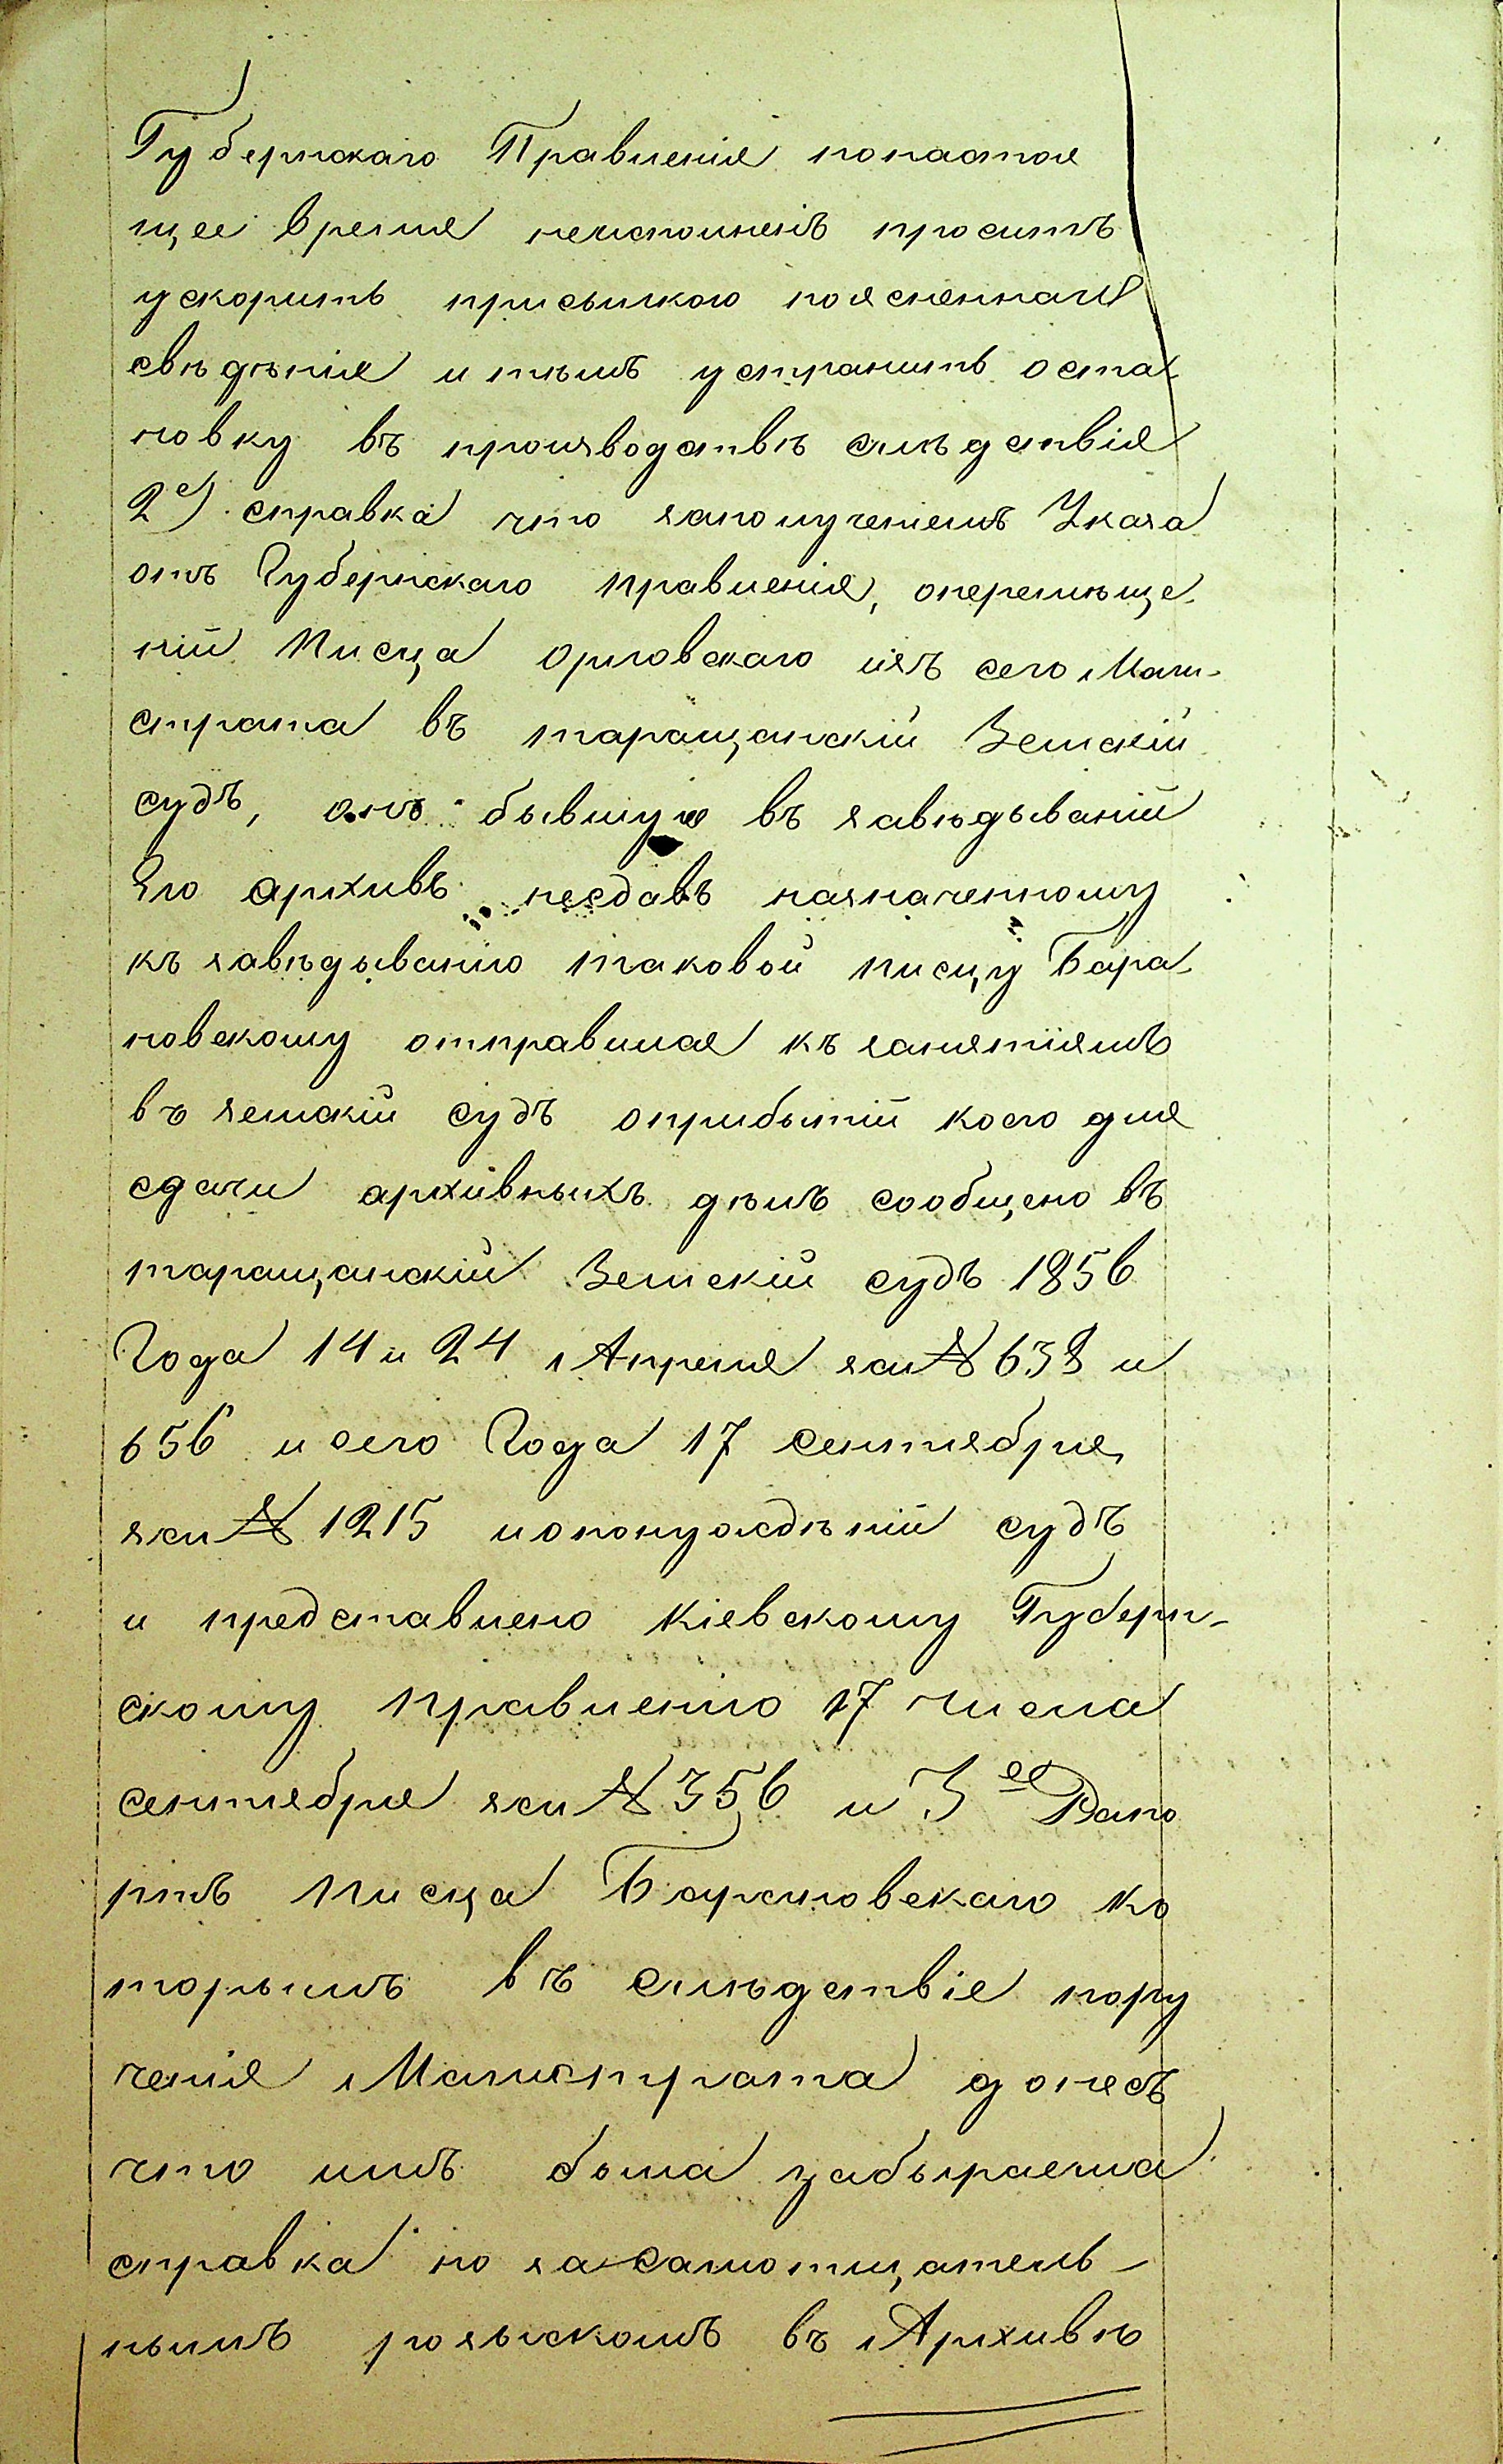 Губернскаго Правленія понастоя
щее время неисполненъ проситъ
ускорить присылкою поясненнаго
свѣдѣнія и тѣмъ устранить оста-
новку въ производствѣ слѣдствія
2е) справка что заполученіемъ Указа
отъ Губернскаго правленія, оперемѣще-
ній Писца Орловскаго изъ сего Маги-
страта въ таращанскій Земскій
судъ, онъ бывшую въ завѣдываній
Его архивъ несдавъ назначенному
къ завѣдыванію таковой писцу Бара-
новскому отправился къ занятіямъ
въ земскій судъ оприбытій коего для
сдачи архивныхъ дѣлъ сообщено въ
таращанскій Земскій судъ 1856
Года 14 и 24 Апреля за № 638 и
656 и сего Года 17 сентября
за № 1215 и опонужденій судъ
и представлено Кіевскому Губерн-
скому правленію 17 числа
сентября за № 356 и 3ее Рапо
ртъ писца Барановскаго ко
торымъ въ слѣдствіе пору
ченія Магистрата донесъ
что имъ была забыраема
справка но засамотщатель-
нымъ розыскомъ въ Архивѣ